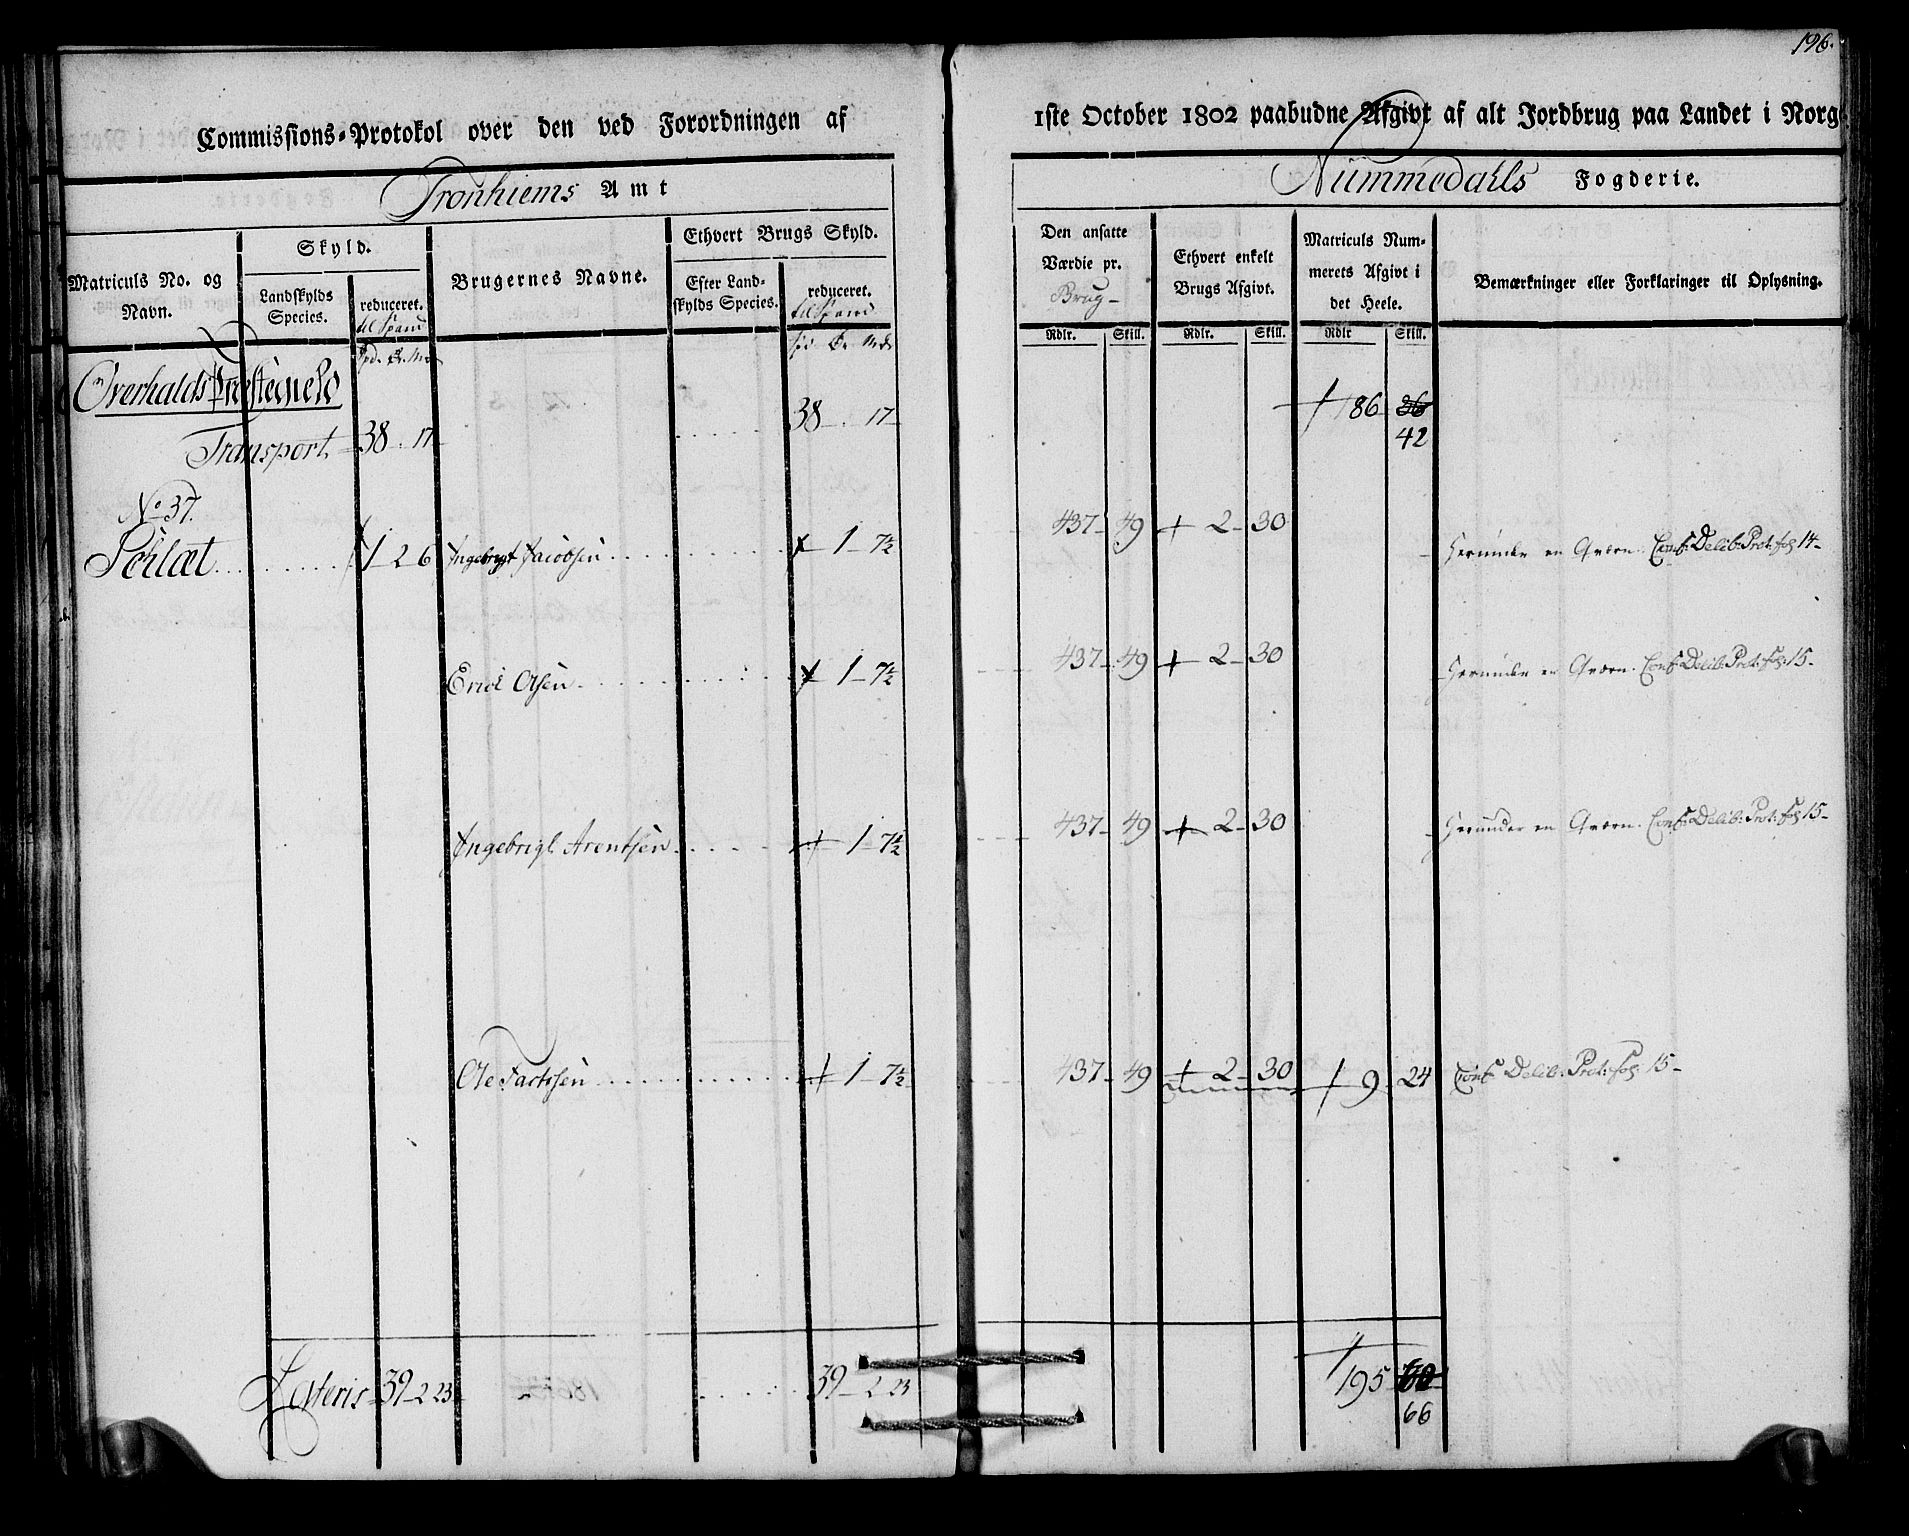 196.
Commissions-Protokol over den ved Forordningen af
1ste October 1802 paabudne Afgivt af alt Jordbrug paa Landet i Norg
Tronhiems Amt
Nummedahls Fogderie.
Matriculs No. og Navn.
Skyld.
Landskylds Species.
reduceret.
til Spand
Brugernes Navne.
Ethvert Brugs Skyld.
Efter Landskylds Species.
reduceret.
til Spand
Den ansatte Værdie pr. Brug
Ethvert enkelt Brugs Afgivt.
Matriculs Nummerets Afgivt i det Heele.
Bemærkninger eller Forklaringer til Oplysning.
Rdlr. Skill. Rdlr. Skill. Rdlr Skill.
Overhalds Præstegield
Transport 38 . 17 38 . 17 186 26
42
No 37.
1 2 6 Ingebrigt Jacobsen 1 - 7½ 437 - 49 2 - 30 Herunder en Qværn. Conf: Delib: Prot: fol: 14
Erich Olsen 1 - 7½ 437 - 49 2 - 30 Herunder en Qværn. Conf: Delib: Prot: fol: 15
Ingebrigt Arentsen 1 - 7½ 437 - 49 2 - 30 Herunder en Qværn. Conf: Delib: Prot: fol: 15
Ole 1 - 7½ 437 - 49 2 - 30 9 24 Conf: Delib: Prot: fol: 15
Lateris 39 - 2 23 39 - 2 23 195
66